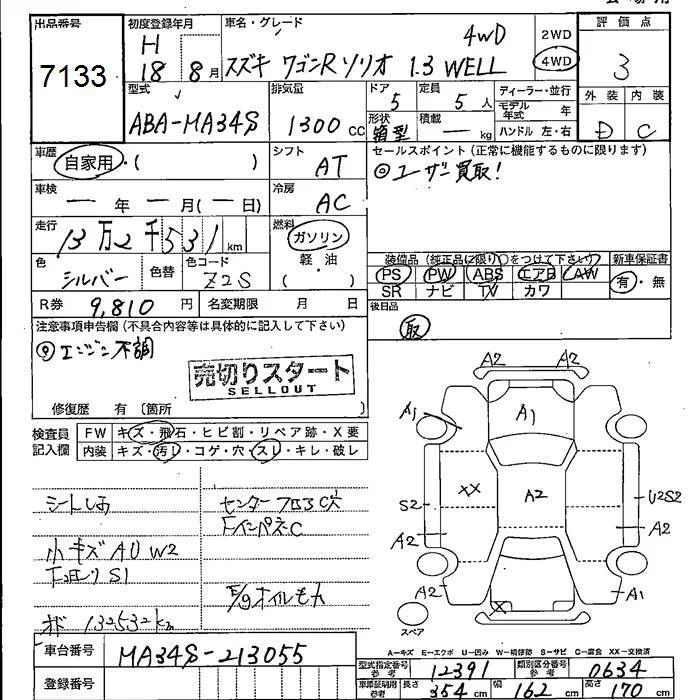 出品番号
7133
初度登録年月
H
18 8月
車名・グレード
スズキ ワゴンRソリオ 1.3 WELL
4WD
2WD
4WD
評価点
3
外装 内装
D C
型式
ABA-MA34S
排気量
1300 cc
ドア
5
定員
5 人
形状
箱型
積載
— kg
ディーラー・並行
モデル年式 年
ハンドル 左・右
車歴
自家用・( )
シフト
AT
セールスポイント(正常に機能するものに限ります)
◎ユーザー買取!
車検
— 年 — 月(— 日)
冷房
AC
走行
13万2千531 km
燃料
ガソリン
軽・油
( )
色
シルバー
色替
色コード
Z2S
装備品(純正品に限り○をつけて下さい)
PS PW ABS エアB AW
SR ナビ TV カワ
新車保証書
有・無
R券 9,810 円
名変期限 月 日
後日品
取
注意事項申告欄(不具合内容等は具体的に記入して下さい)
◎エンジン不調
売切りスタート
SELLOUT
修復歴 有 〔箇所 〕
検査員
記入欄
FW キズ・飛石・ヒビ割・リペア跡・X要
内装 キズ・汚れ・コゲ・穴・スレ・キレ・破レ
センターフロアC穴
FインパネC
小キズ AU W2
S1
E/gオイルもれ
132532km
A2 A2
A1
A1
XX
A2
S2
U2S2
A2
A2
A2
X
A1
スペア
A-キズ E-エクボ U-凹み W-補修跡 S-サビ C-腐食 XX-交換済
車台番号
MA34S-213055
登録番号
型式指定番号
参考
12391
類別区分番号
参考
0634
車庫証明用
参考
長さ 354 cm 幅 162 cm 高さ 170 cm